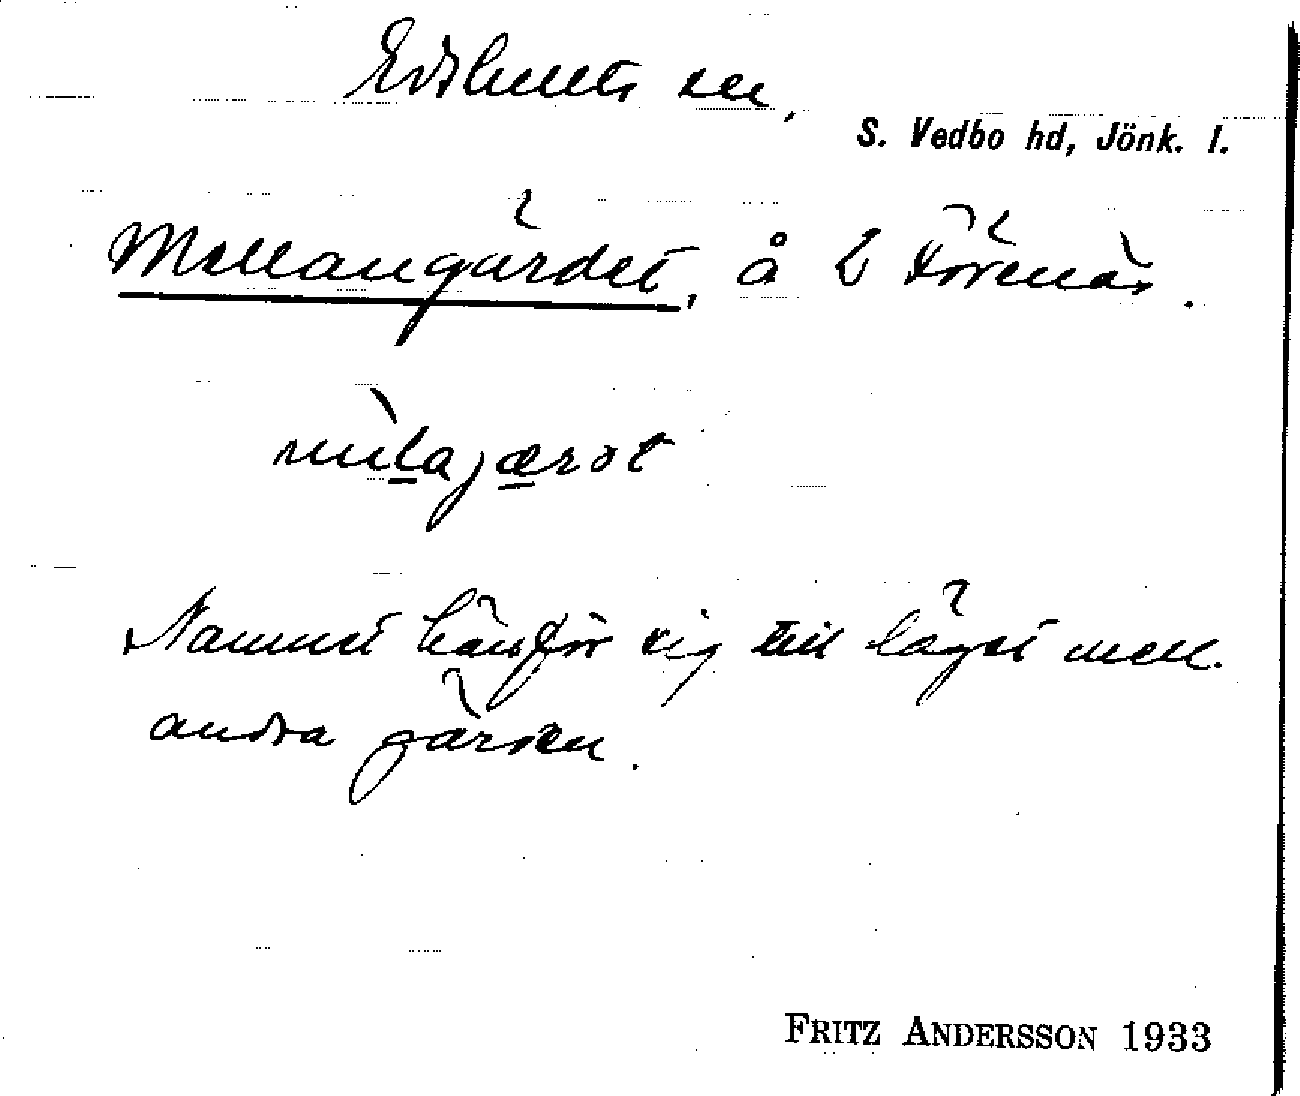 Edshults sn,
S. Vedbo hd, Jönk. l.
Mellangärdet, å L Förenäs.
mìlajærdt
Namnet hänför sig till läget mell.
andra gärden.
FRITZ ANDERSSON 1933